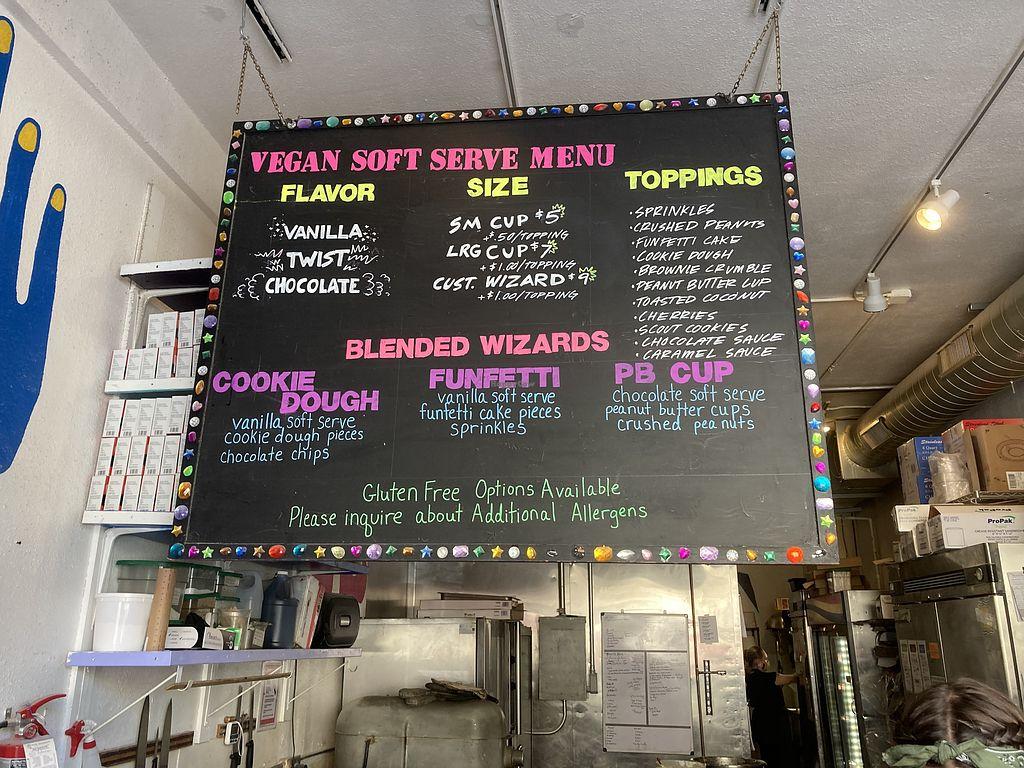 VEGAN SOFT SERVE MENU
FLAVOR
VANILLA
TWIST
CHOCOLATE
SIZE
SM CUP $5
+$.50/TOPPING
LRG CUP $7
+$1.00/TOPPING
CUST. WIZARD $9
+$1.00/TOPPING
TOPPINGS
• SPRINKLES
• CRUSHED PEANUTS
• FUNFETTI CAKE
• COOKIE DOUGH
• BROWNIE CRUMBLE
• PEANUT BUTTER CUP
• TOASTED COCONUT
• CHERRIES
• SCOUT COOKIES
• CHOCOLATE SAUCE
• CARAMEL SAUCE
BLENDED WIZARDS
COOKIE
DOUGH
vanilla soft serve
cookie dough pieces
chocolate chips
FUNFETTI
vanilla soft serve
funfetti cake pieces
sprinkles
PB CUP
chocolate soft serve
peanut butter cups
crushed peanuts
Gluten Free Options Available
Please inquire about Additional Allergens
ProPak